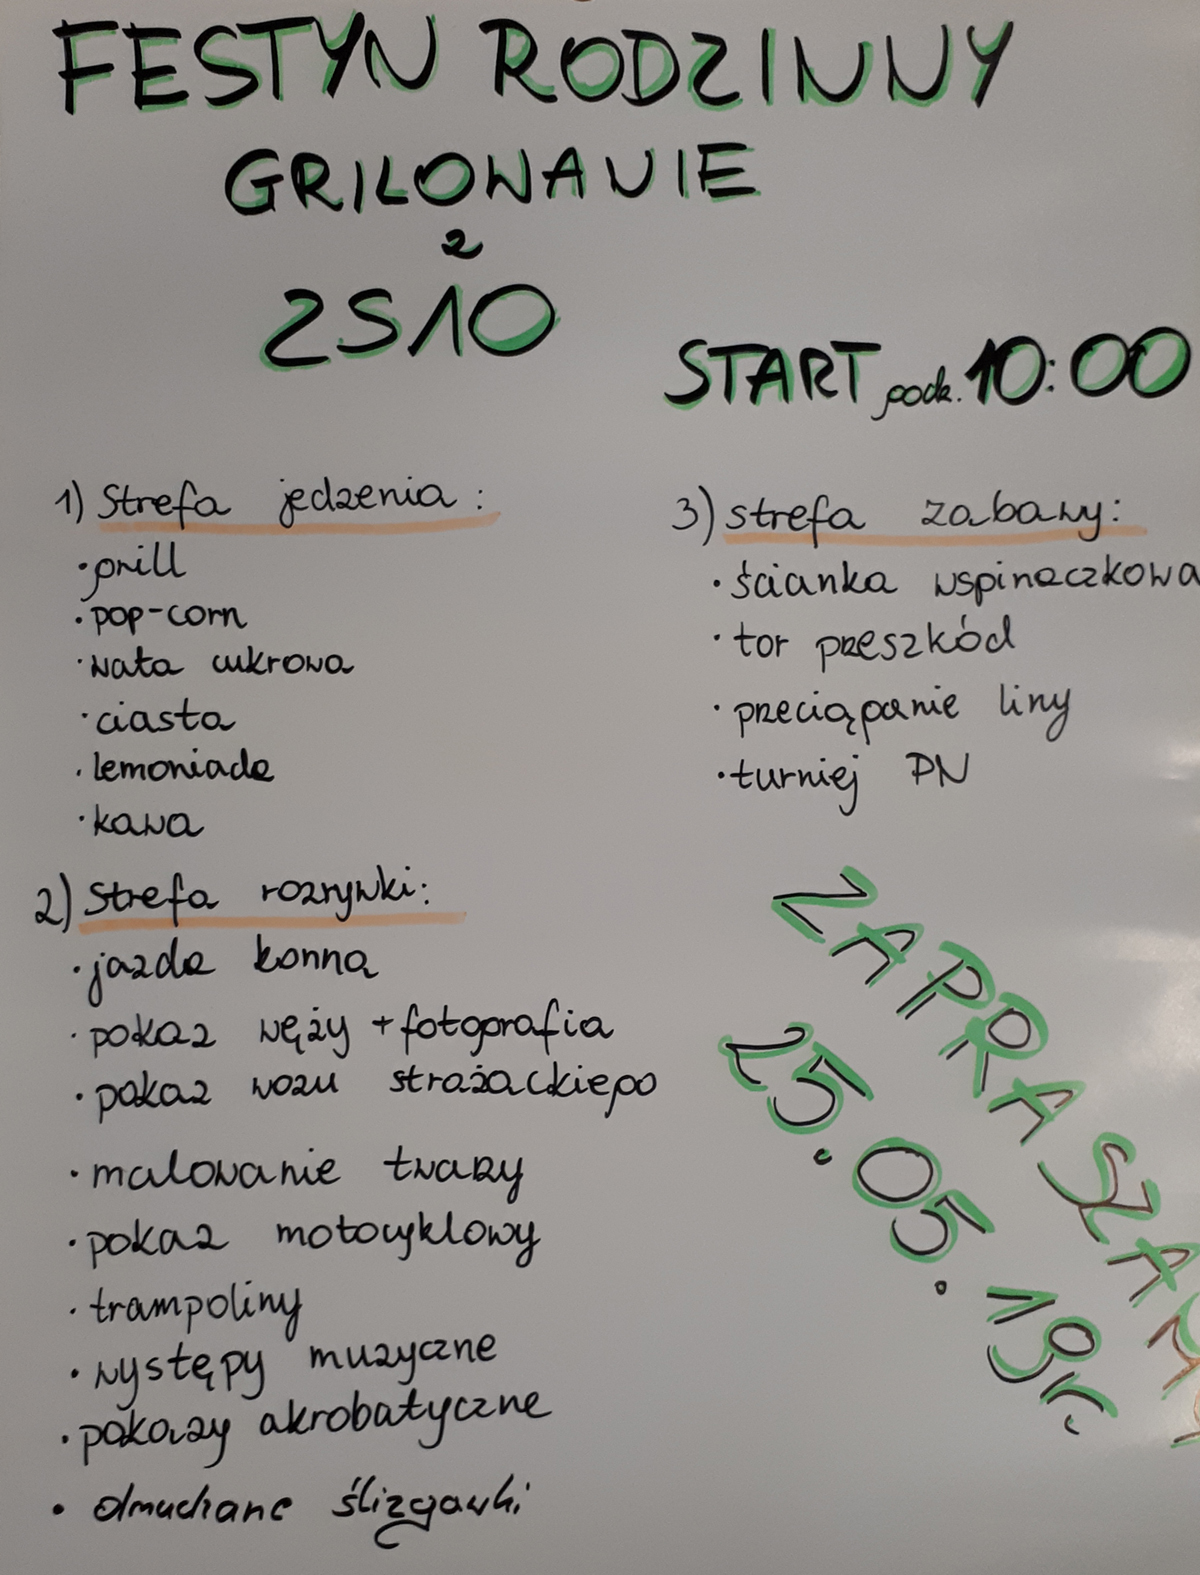 FESTYN RODZINNY
GRILOWANIE
z
ZS10
START godz. 10:00
1) Strefa jedzenia:
• grill
• pop-corn
• wata cukrowa
• ciasta
• lemoniada
• kawa
2) Strefa rozrywki:
• jazda konna
• pokaz węży + fotografia
• pokaz wozu strażackiego
• malowanie twarzy
• pokaz motocyklowy
• trampoliny
• występy muzyczne
• pokazy akrobatyczne
• dmuchane ślizgawki
3) strefa zabawy:
• ścianka wspinaczkowa
• tor przeszkód
• przeciąganie liny
• turniej PN
ZAPRASZAMY
25.05.19r.